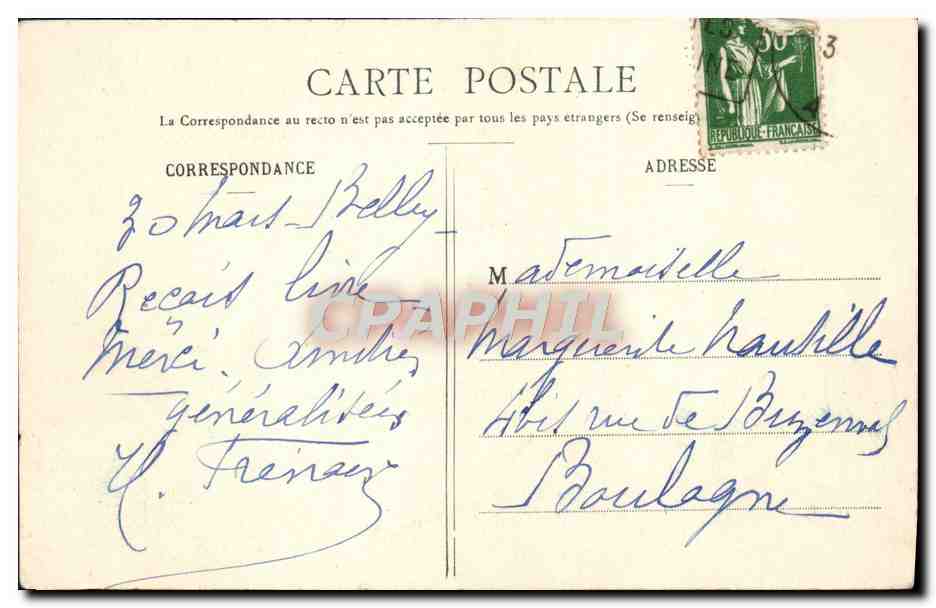 CARTE POSTALE
La Correspondance au recto n'est pas acceptée par tous les pays etrangers (Se renseig
CORRESPONDANCE
20 Mars - Belley
Reçois livre
Merci. Amitiés
généralisées
H.
ADRESSE
Mademoiselle
Marguerite
4bis rue de Buzenval
Boulogne
50
REPUBLIQUE-FRANÇAISE
3
CRAPHIL